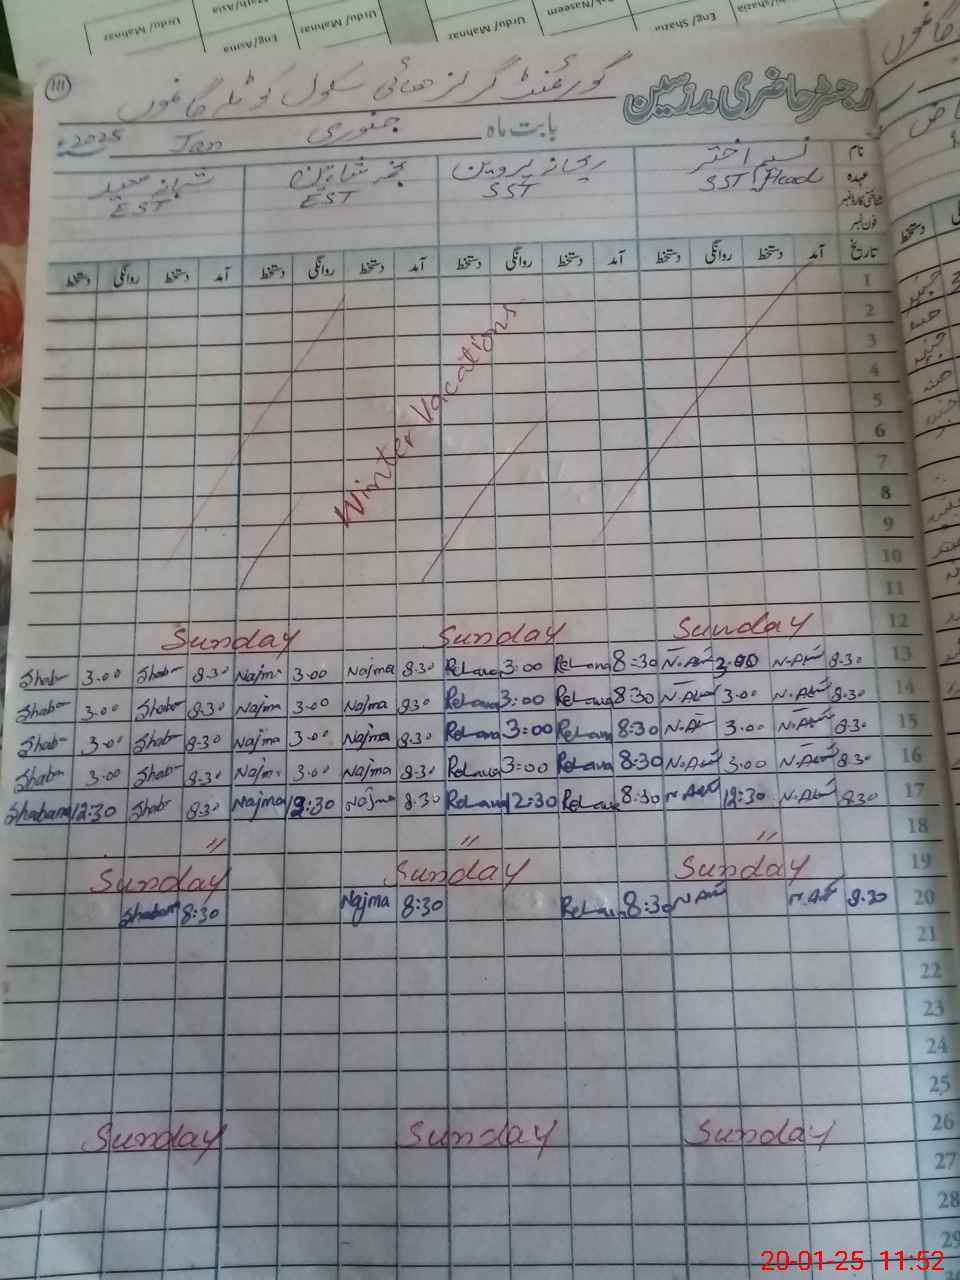 Urdu/ Mahnaz
Eng/Asma
Math/Asia
Urdu/ Mahnaz
Urdu / Mahnaz
Eng/ Shana
111
رجسٹر حاضری مدرسین
گورنمنٹ گرلز ھائی سکول
بابت ماہ جنوری Jan 2025ء
نام نسیم اختر ریحانہ پروین نجمہ شاہین شبانہ مجید
عہدہ SST Head SST EST EST
شناختی کارڈ نمبر
فون نمبر
تاریخ آمد دستخط روانگی دستخط آمد دستخط روانگی دستخط آمد دستخط روانگی دستخط آمد دستخط روانگی دستخط
1
2
3
4
5
6
7
8
9
10
11
Winter Vacations
Sunday Sunday Sunday 12
Shab 3.00 Shab 8.30 Najma 3.00 Najma 8.30 Rehana 3:00 Rehana 8:30 N.Akh 3.00 N.Akh 8.30 13
Shab 3.00 Shab 8.30 Najma 3.00 Najma 8.30 Rehana 3:00 Rehana 8:30 N.Akh 3.00 N.Akh 8.30 14
Shab 3.00 Shab 8.30 Najma 3.00 Najma 8.30 Rehana 3:00 Rehana 8:30 N.Akh 3.00 N.Akh 8.30 15
Shab 3.00 Shab 8.30 Najma 3.00 Najma 8.30 Rehana 3:00 Rehana 8:30 N.Akh 3.00 N.Akh 8.30 16
Shabana 12:30 Shab 8.30 Najma 12:30 Najma 8.30 Rehana 12:30 Rehana 8:30 N.Akh 12:30 N.Akh 8.30 17
18
" " "
Sunday Sunday Sunday 19
Shabana 8:30 Najma 8:30 Rehana 8:30 N.Akh N.Akh 8.30 20
21
22
23
24
25
Sunday Sunday Sunday 26
27
28
29
20-01-25 11:52